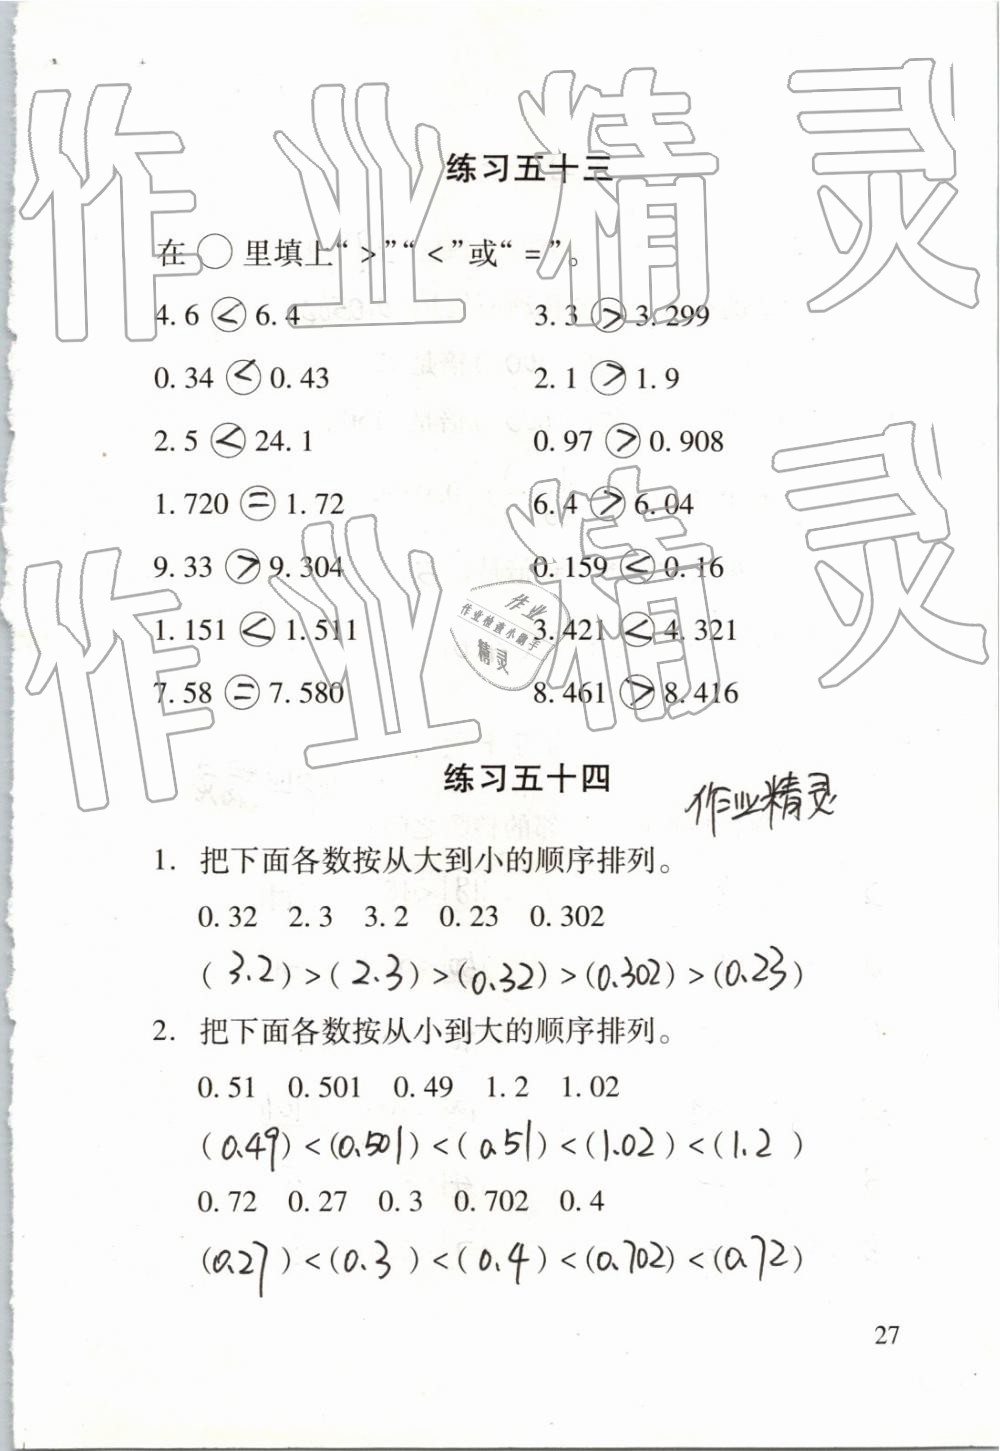 作业精灵
练习五十三
在○里填上“>”“<”或“=”。
4.6 < 6.4 3.3 > 3.299
0.34 < 0.43 2.1 > 1.9
2.5 < 24.1 0.97 > 0.908
1.720 = 1.72 6.4 > 6.04
9.33 > 9.304 0.159 < 0.16
作业精灵
作业
作业检查小助手
精灵
1.151 < 1.511 3.421 < 4.321
7.58 = 7.580 8.461 > 8.416
练习五十四
作业精灵
1. 把下面各数按从大到小的顺序排列。
0.32 2.3 3.2 0.23 0.302
(3.2)>(2.3)>(0.32)>(0.302)>(0.23)
2. 把下面各数按从小到大的顺序排列。
0.51 0.501 0.49 1.2 1.02
(0.49)<(0.501)<(0.51)<(1.02)<(1.2)
0.72 0.27 0.3 0.702 0.4
(0.27)<(0.3)<(0.4)<(0.702)<(0.72)
27